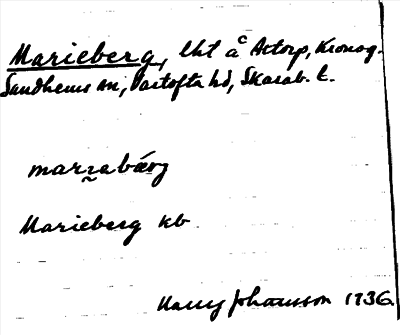 Marieberg, lht å Åstorp, Kronog.
Sandhems sn, Vartofta hd, Skarab. l.
marɪ̯abærj
Marieberg kb
Harry Johansson 1936